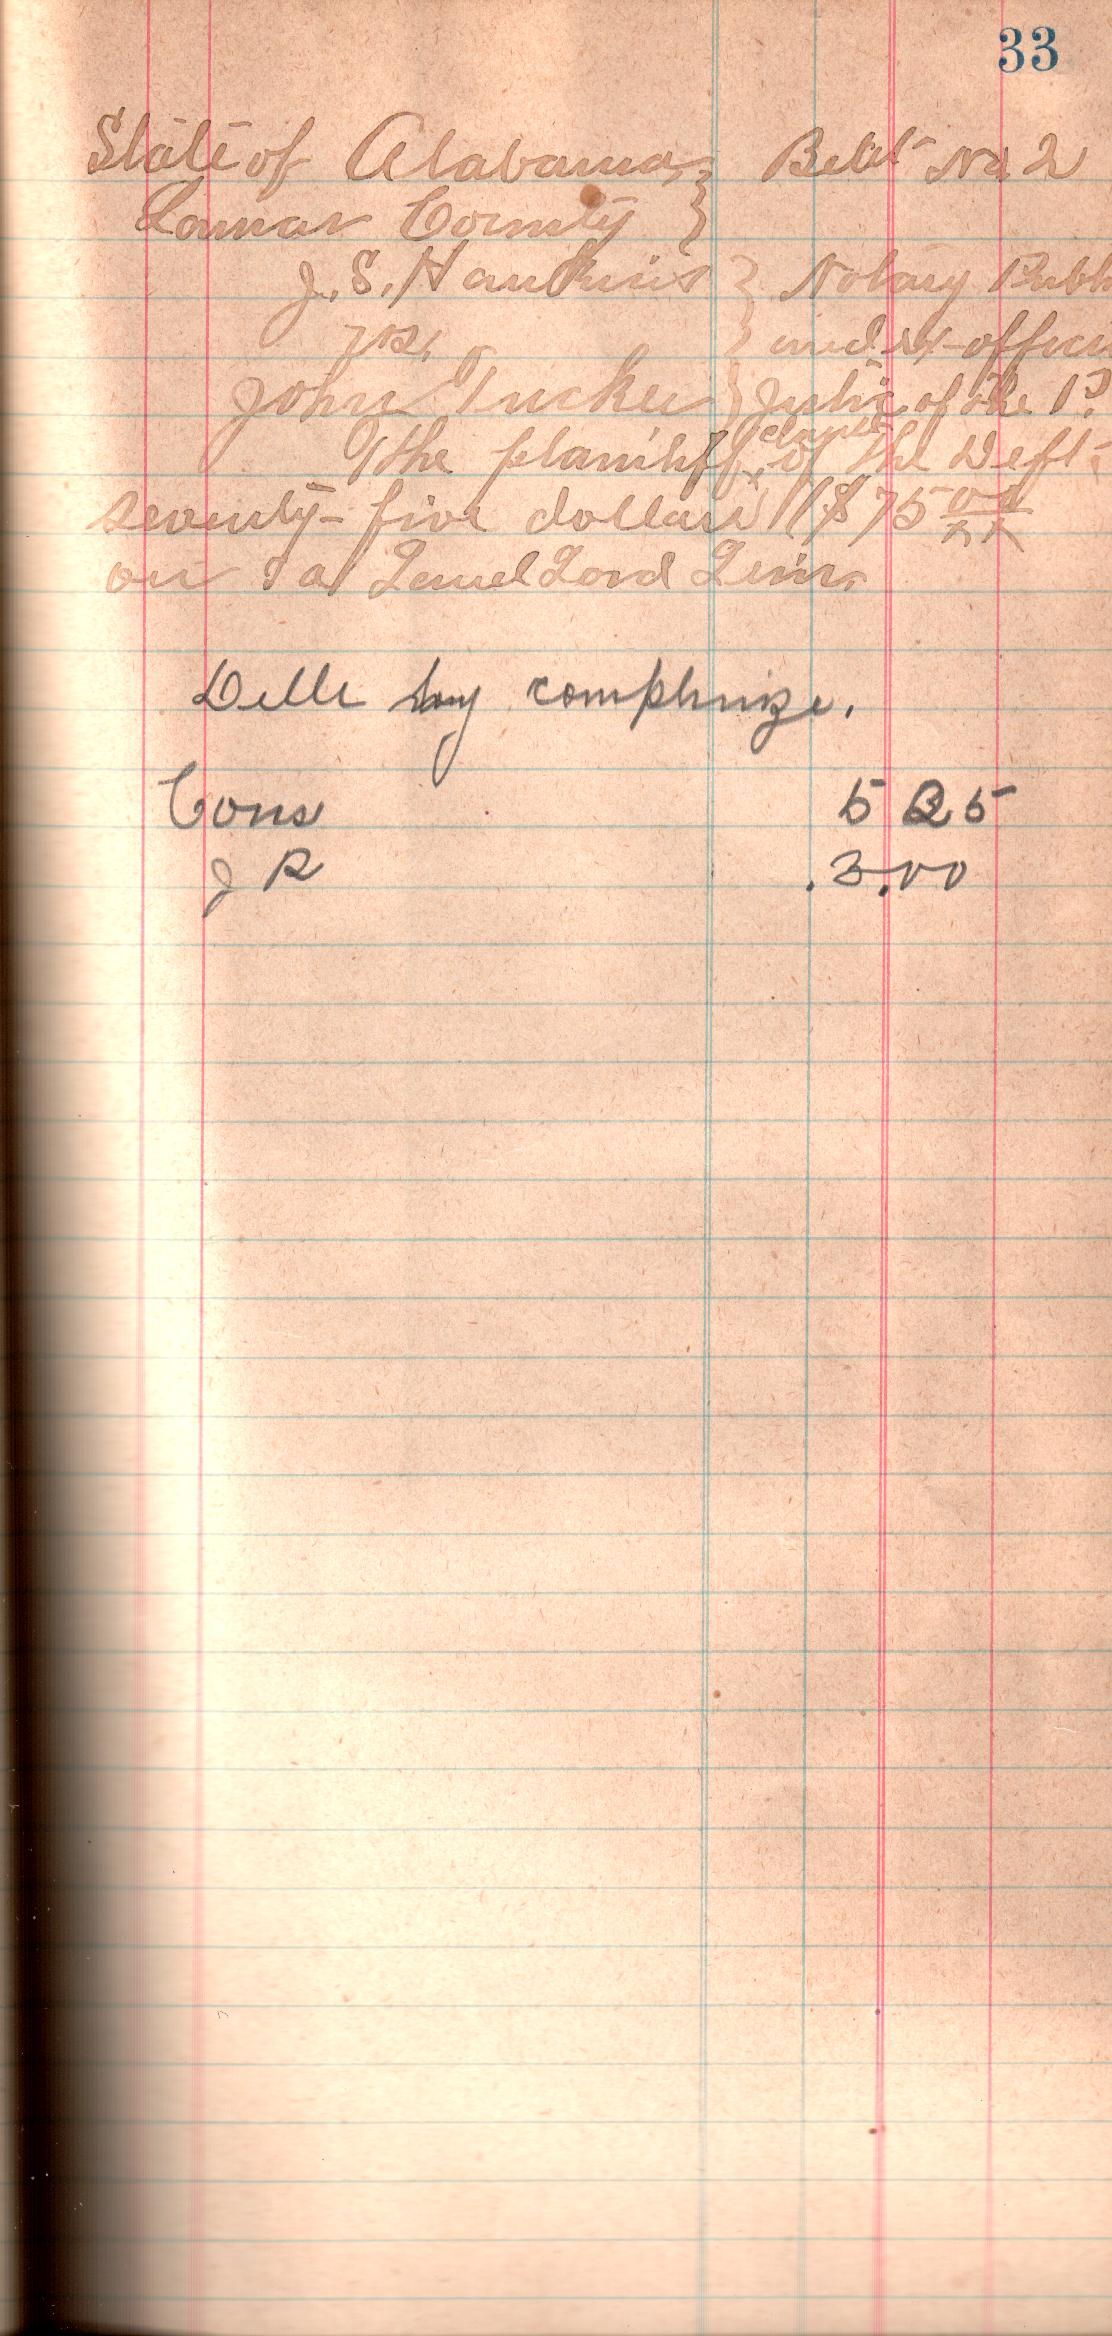 33
State of Alabama } Beat No 2
Lamar County }
J. S. Hankins } Notary Publ
vs. } and ex-offici
John Tucker } Justic of the P.
The plaintiff claims of the Deft.
seventy-five dollars ($75 00/xx
on a Land Lord Lein.
by
Cons 5 25
J P .3.00